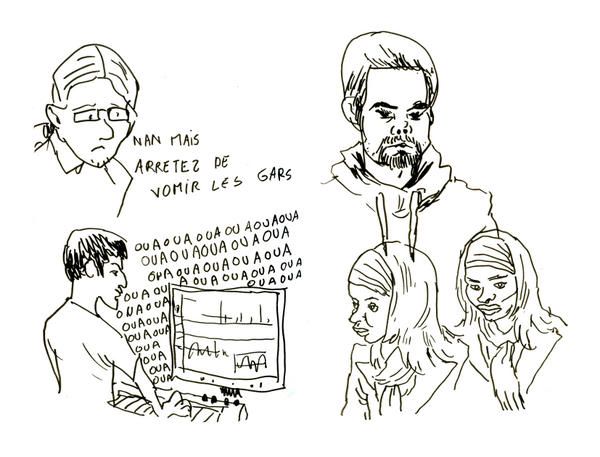 NAN MAIS
ARRETEZ DE
VOMIR LES GARS
OUAOUAOUAOUAOUAOUA
OUAOUAOUAOUAOUA
OUAOUAOUAOUAOUA
OUAOUAOUAOUAOUA
OUAOUA
OUAOUA
OUAOUA
OUAOUA
OUAOUA
OUA
OUA
OUA
OUA